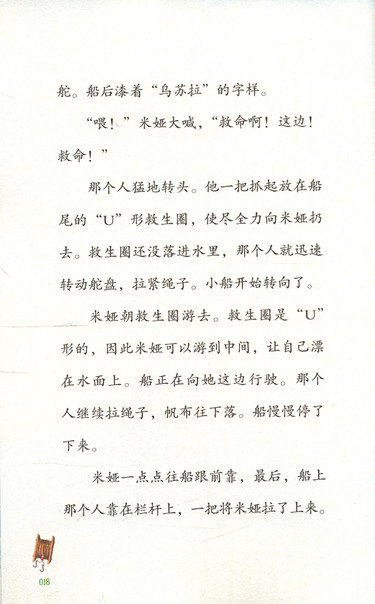 舵。船后漆着“乌苏拉”的字样。
“喂！”米娅大喊，“救命啊！这边！
救命！”
那个人猛地转头。他一把抓起放在船
尾的“U”形救生圈，使尽全力向米娅扔
去。救生圈还没落进水里，那个人就迅速
转动舵盘，拉紧绳子。小船开始转向了。
米娅朝救生圈游去。救生圈是“U”
形的，因此米娅可以游到中间，让自己漂
在水面上。船正在向她这边行驶。那个
人继续拉绳子，帆布往下落。船慢慢停了
下来。
米娅一点点往船跟前靠，最后，船上
那个人靠在栏杆上，一把将米娅拉了上来。
018